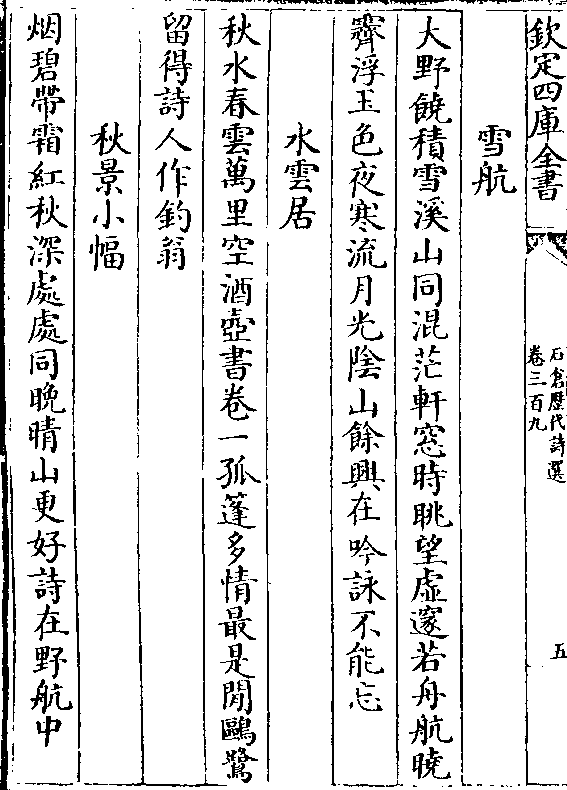 欽定四庫全書
石倉歴代詩選
卷三百九
五
雪航
大野饒積雪溪山同混茫軒窓時眺望虚邃若舟航曉
霽浮玉色夜寒流月光陰山餘興在吟詠不能忘
水雲居
秋水春雲萬里空酒壺書卷一孤篷多情最是閒鷗鷺
留得詩人作釣翁
秋景小幅
烟碧帶霜紅秋深處處同晚晴山更好詩在野航中